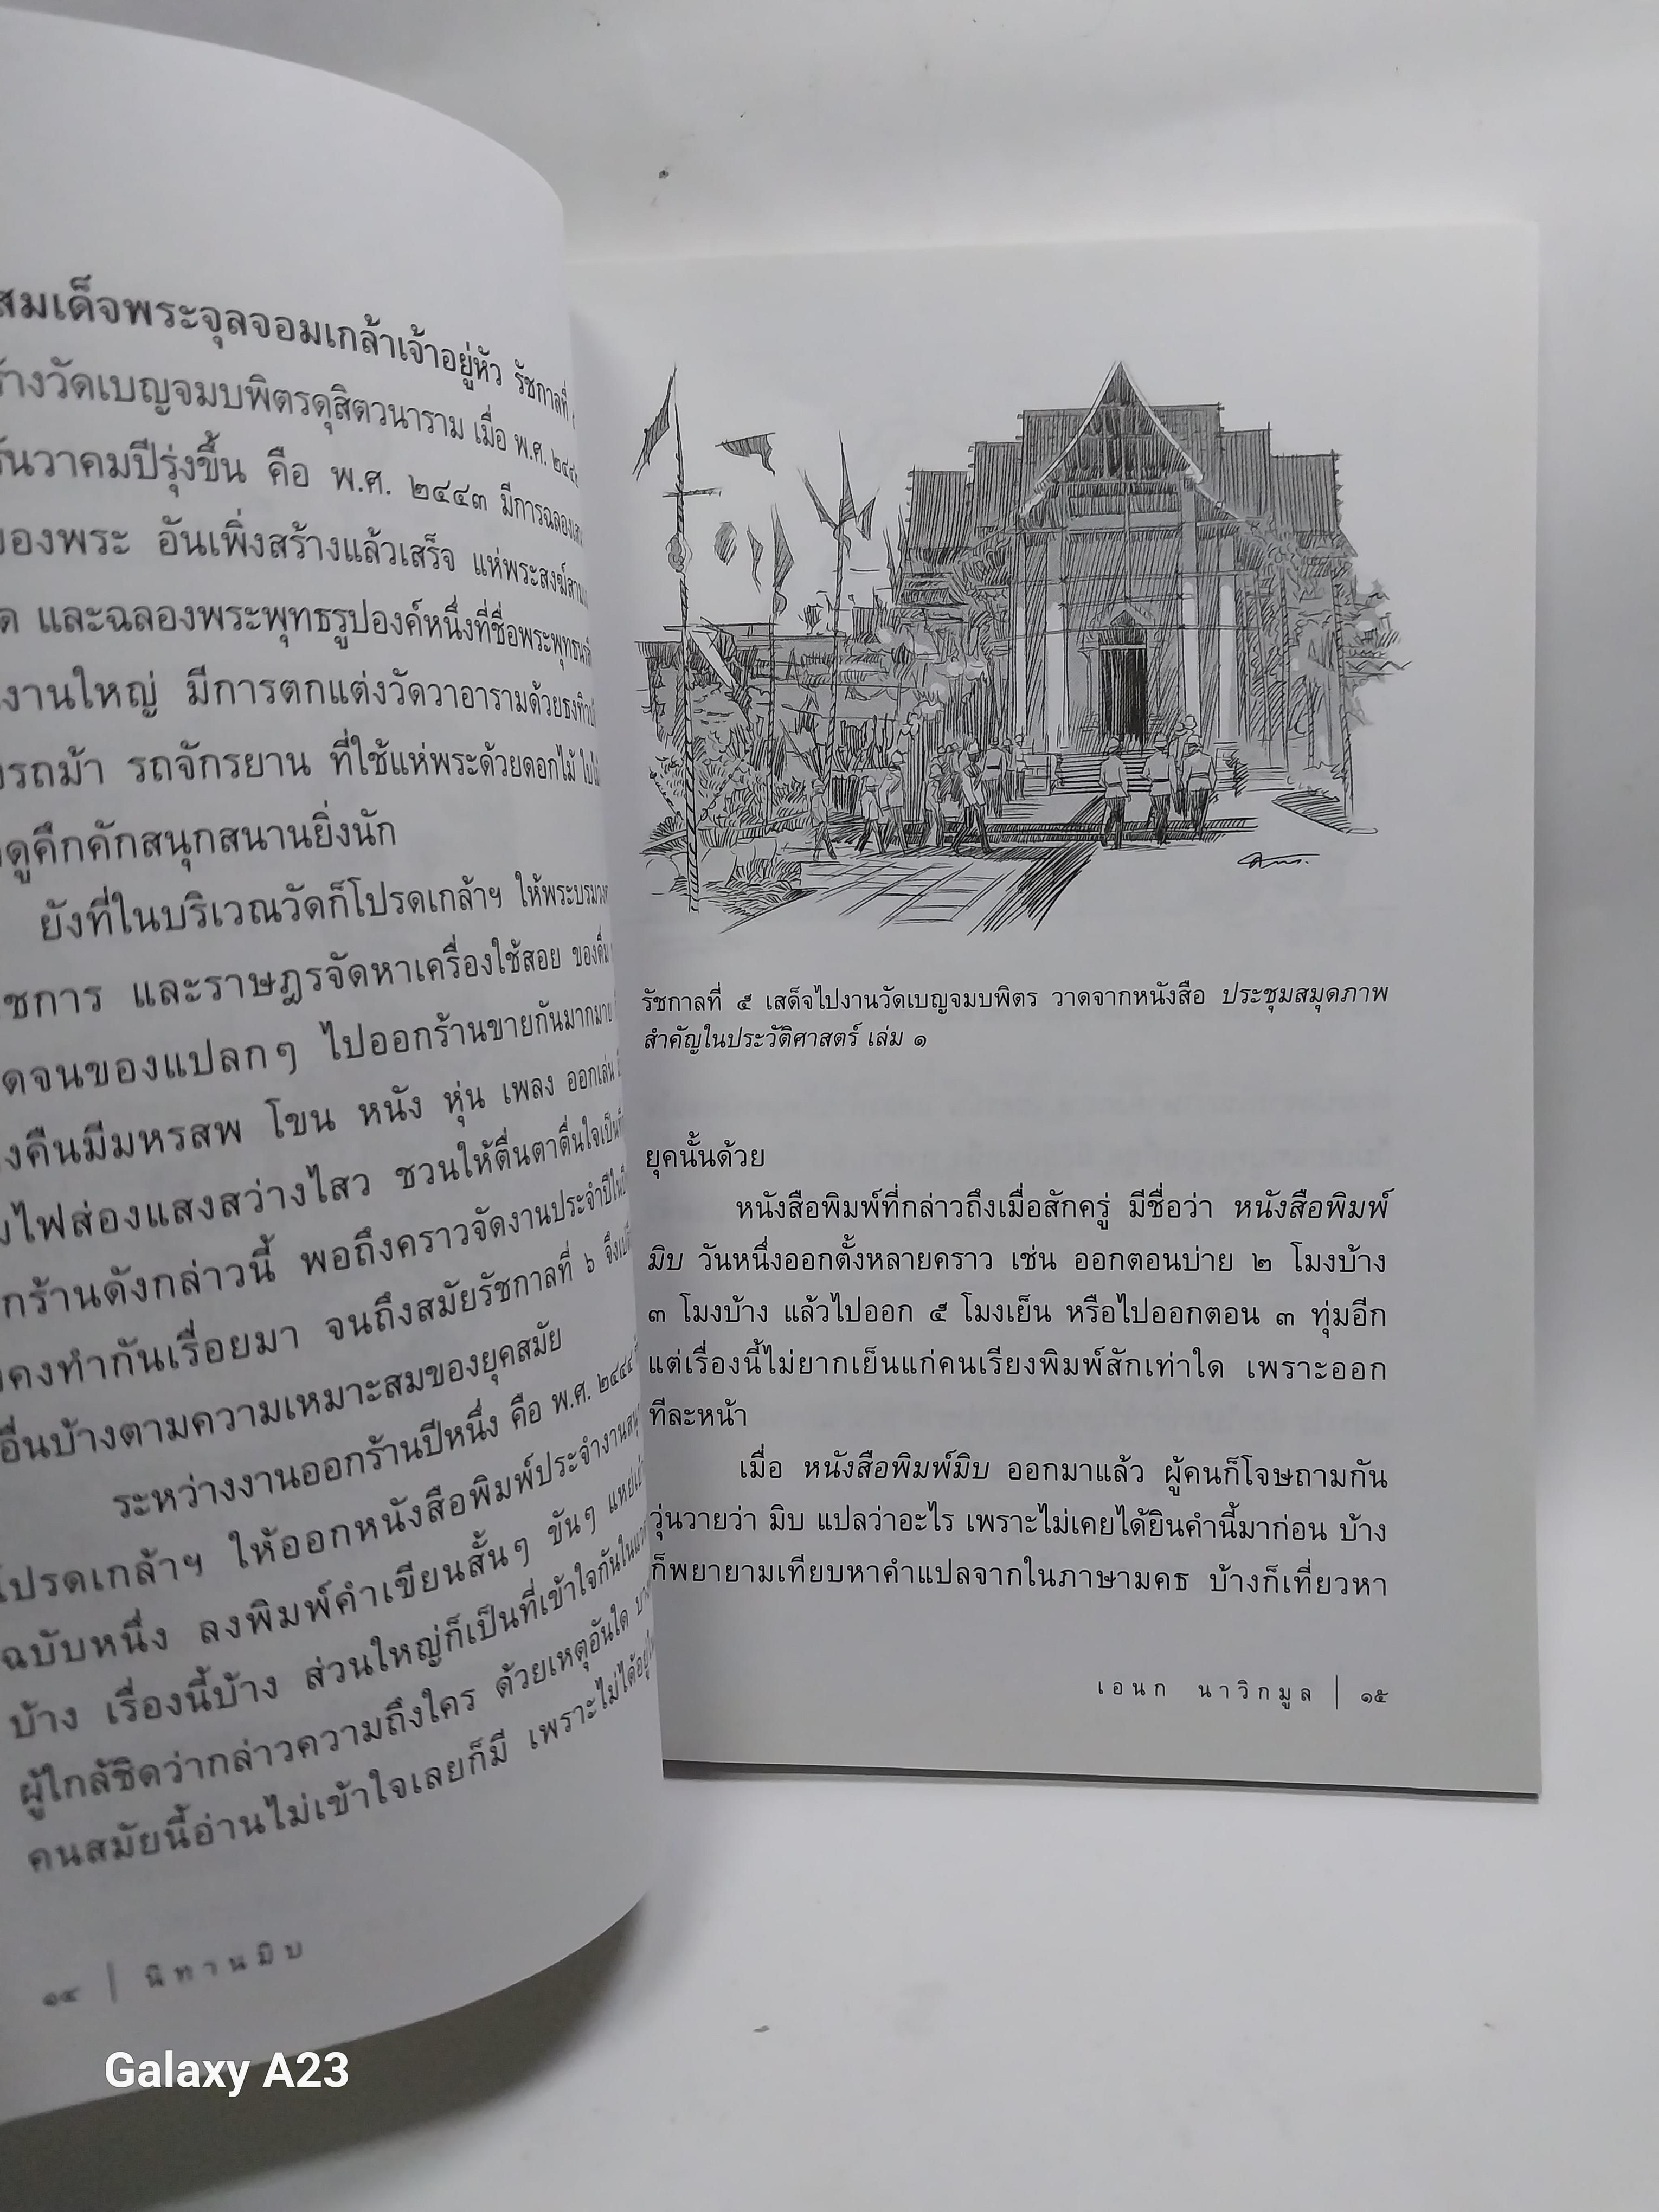 สมเด็จพระจุลจอมเกล้าเจ้าอยู่หัว รัชกาลที่
ร้างวัดเบญจมบพิตรดุสิตวนาราม เมื่อ พ.ศ.
ธันวาคมปีรุ่งขึ้น คือ พ.ศ. ๒๔๔๓ มีการฉลอง
ของพระ อันเพิ่งสร้างแล้วเสร็จ แห่พระสงฆ์
และฉลองพระพุทธรูปองค์หนึ่งที่ชื่อ
งานใหญ่ มีการตกแต่งวัดวาอารามด้วยธงทิว
รถม้า รถจักรยาน ที่ใช้แห่พระด้วยดอกไม้
ดูคึกคักสนุกสนานยิ่งนัก
ยังที่ในบริเวณวัดก็โปรดเกล้าฯ ให้
ชการ และราษฎรจัดหาเครื่องใช้สอย ของดื่ม
ดจนของแปลกๆ ไปออกร้านขายกันมากมาย
งคืนมีมหรสพ โขน หนัง หุ่น เพลง ออกเล่น
ไฟส่องแสงสว่างไสว ชวนให้ตื่นตาตื่นใจ
กร้านดังกล่าวนี้ พอถึงคราวจัดงานประจำปี
คงทำกันเรื่อยมา จนถึงสมัยรัชกาลที่ ๖
อื่นบ้างตามความเหมาะสมของยุคสมัย
ระหว่างงานออกร้านปีหนึ่ง คือ พ.ศ. ๒๔๔๔
โปรดเกล้าฯ ให้ออกหนังสือพิมพ์ประจำงาน
ฉบับหนึ่ง ลงพิมพ์คำเขียนสั้นๆ ขันๆ
บ้าง เรื่องนี้บ้าง ส่วนใหญ่ก็เป็นที่เข้าใจกันใน
ผู้ใกล้ชิดว่ากล่าวความถึงใคร ด้วยเหตุอันใด
คนสมัยนี้อ่านไม่เข้าใจเลยก็มี เพราะไม่ได้อยู่
๑๔ | นิทานมิบ
รัชกาลที่ ๕ เสด็จไปงานวัดเบญจมบพิตร วาดจากหนังสือ ประชุมสมุดภาพ
สำคัญในประวัติศาสตร์ เล่ม ๑
ยุคนั้นด้วย
หนังสือพิมพ์ที่กล่าวถึงเมื่อสักครู่ มีชื่อว่า หนังสือพิมพ์
มิบ วันหนึ่งออกตั้งหลายคราว เช่น ออกตอนบ่าย ๒ โมงบ้าง
๓ โมงบ้าง แล้วไปออก ๕ โมงเย็น หรือไปออกตอน ๓ ทุ่มอีก
แต่เรื่องนี้ไม่ยากเย็นแก่คนเรียงพิมพ์สักเท่าใด เพราะออก
ทีละหน้า
เมื่อ หนังสือพิมพ์มิบ ออกมาแล้ว ผู้คนก็โจษถามกัน
วุ่นวายว่า มิบ แปลว่าอะไร เพราะไม่เคยได้ยินคำนี้มาก่อน บ้าง
ก็พยายามเทียบหาคำแปลจากในภาษามคธ บ้างก็เที่ยวหา
เอนก นาวิกมูล | ๑๕
Galaxy A23